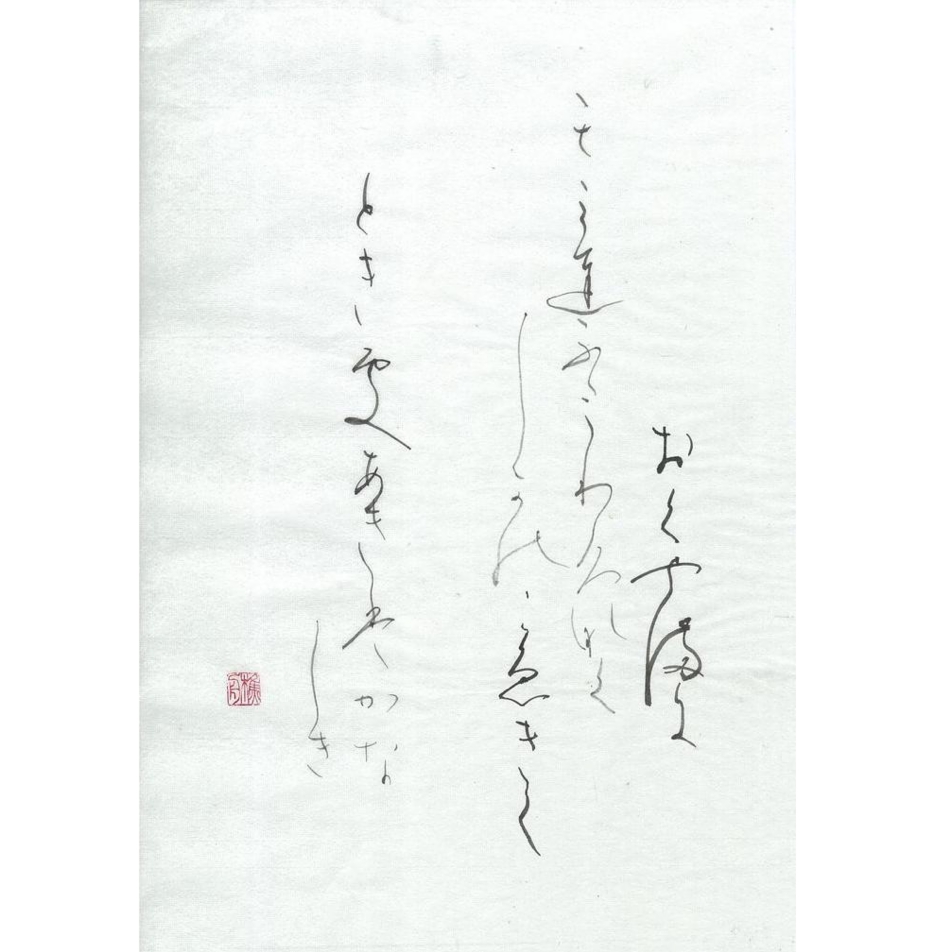 おくやまに
もみぢふみわけなく
しかのこゑきく
ときぞあきはかな
しき